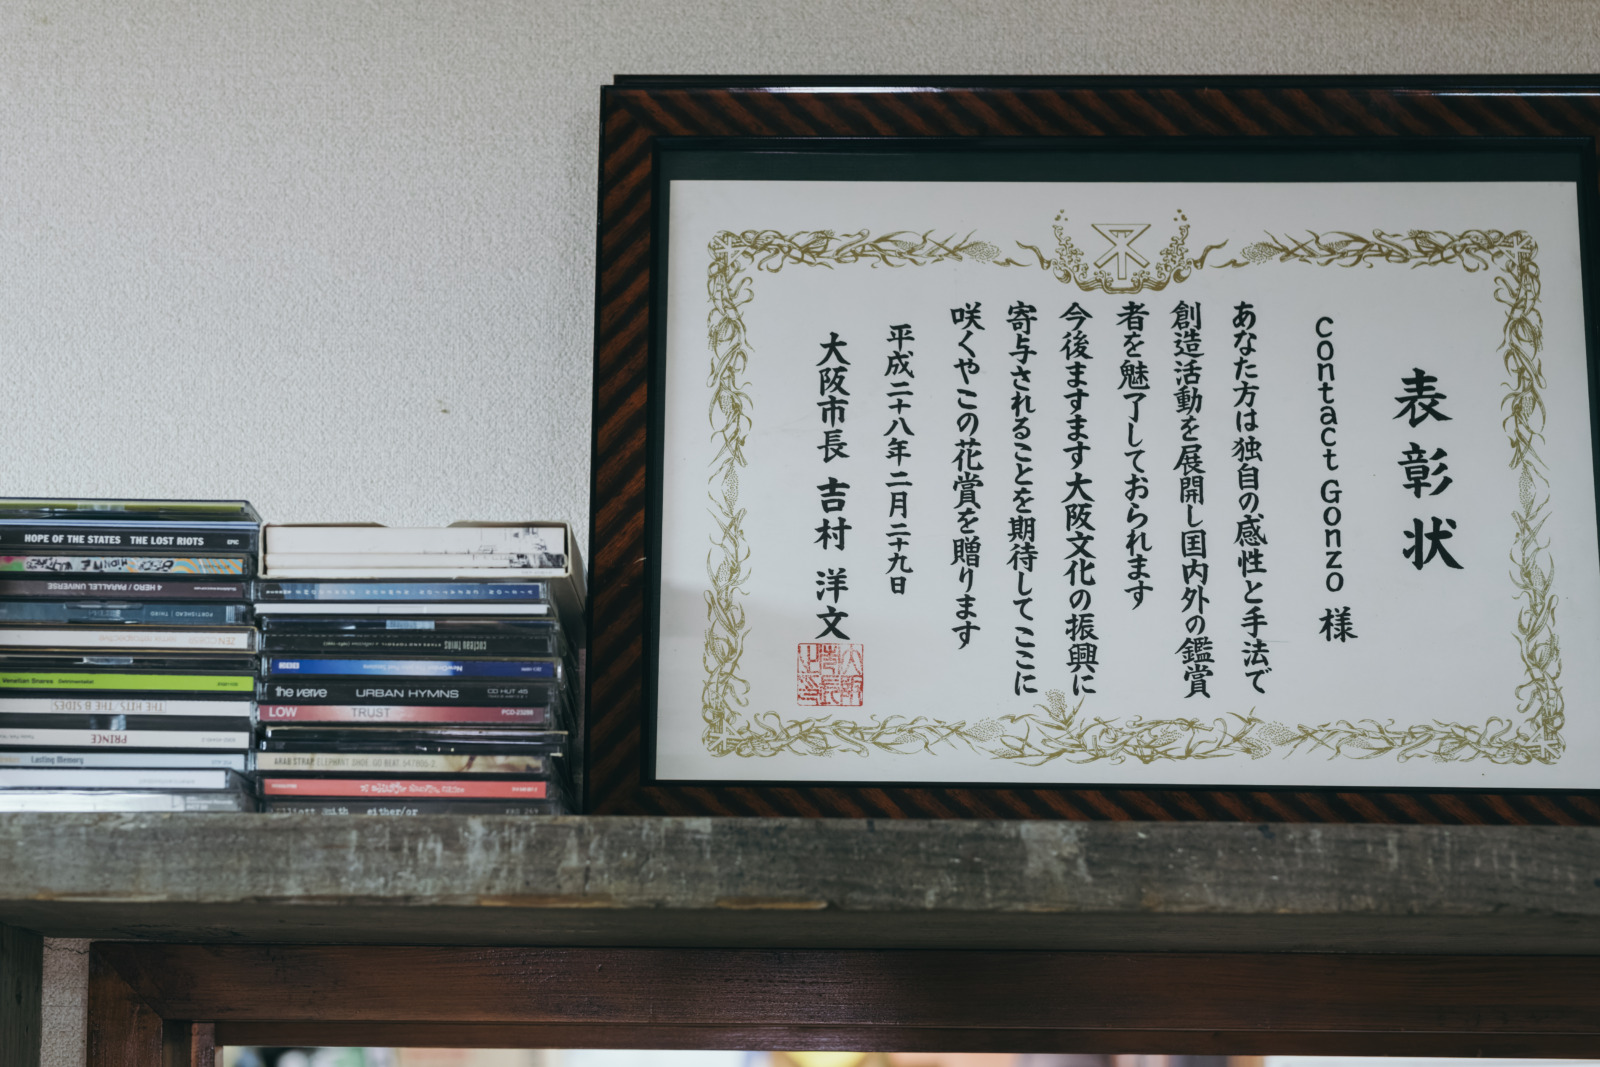 HOPE OF THE STATES THE LOST RIOTS EPIC
4 HERO / PARALLEL UNIVERSE
PORTISHEAD | THIRD
Venetian Snares
THE HITS/THE B SIDES
PRINCE
Lasting Memory
cocteau twins
BBC
the verve URBAN HYMNS CD HUT 45
LOW TRUST PCD-23288
ARAB STRAP ELEPHANT SHOE. GO BEAT. 547805-2.
elliott smith either/or KRS 269
表彰状
contact Gonzo 様
あなた方は独自の感性と手法で
創造活動を展開し国内外の鑑賞
者を魅了しておられます
今後ますます大阪文化の振興に
寄与されることを期待してここに
咲くやこの花賞を贈ります
平成二十八年二月二十九日
大阪市長 吉村 洋文